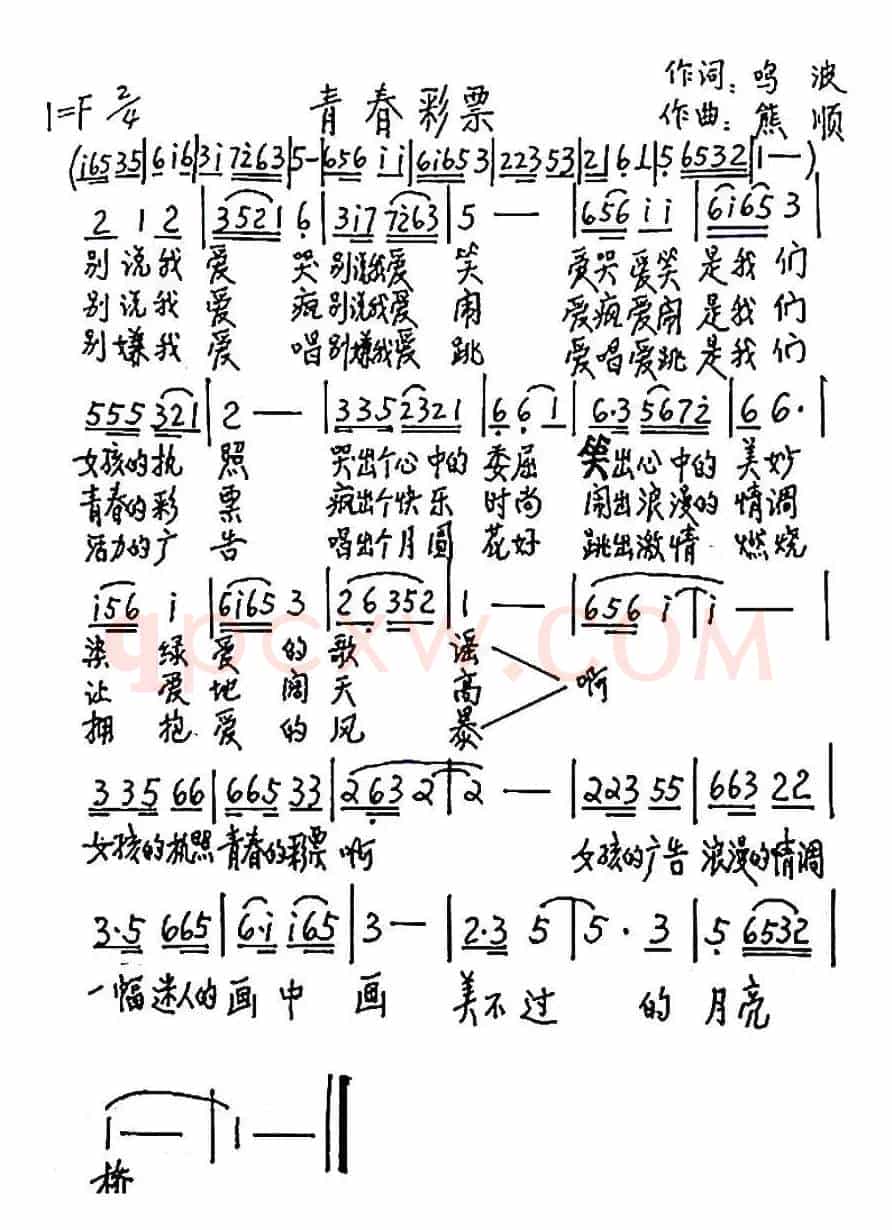 作词：鸣 波
1=F 2/4 青春彩票 作曲：熊 顺
(i65 35|6i6|3i 7i63|5-|656 ii|6i65 3|223 53|21 61|5 6532|1—)
2 1 2|3521 6|3i7 7i63|5 —|656 ii|6i65 3|
别说我 爱 哭别说我爱 笑 爱哭爱笑是我们
别说我 爱 疯别说我爱 闹 爱疯爱闹是我们
别嫌我 爱 唱别嫌我爱 跳 爱唱爱跳是我们
555 321|2 —|335 2321|6 6 1|6·3 567i|6 6·|
女孩的执 照 哭出个心中的 委屈 笑出心中的 美妙
青春的彩 票 疯出个快乐 时尚 闹出浪漫的 情调
活力的广 告 唱出个月圆 花好 跳出激情 燃烧
i56 i|6i65 3|26 352|1 —|656 i|i —|
染 绿 爱 的 歌 谣
让 爱 地 阔 天 高 啊
拥 抱 爱 的 风 暴
qpcxw.COM
335 66|665 33|263 2|2 —|223 55|663 22|
女孩的执照 青春的彩票 啊 女孩的广告 浪漫的情调
3·5 665|6·i i65|3 —|2·3 5|5· 3|5 6532|
一幅迷人的画中 画 美不过 的 月亮
1 —|1 —‖
桥